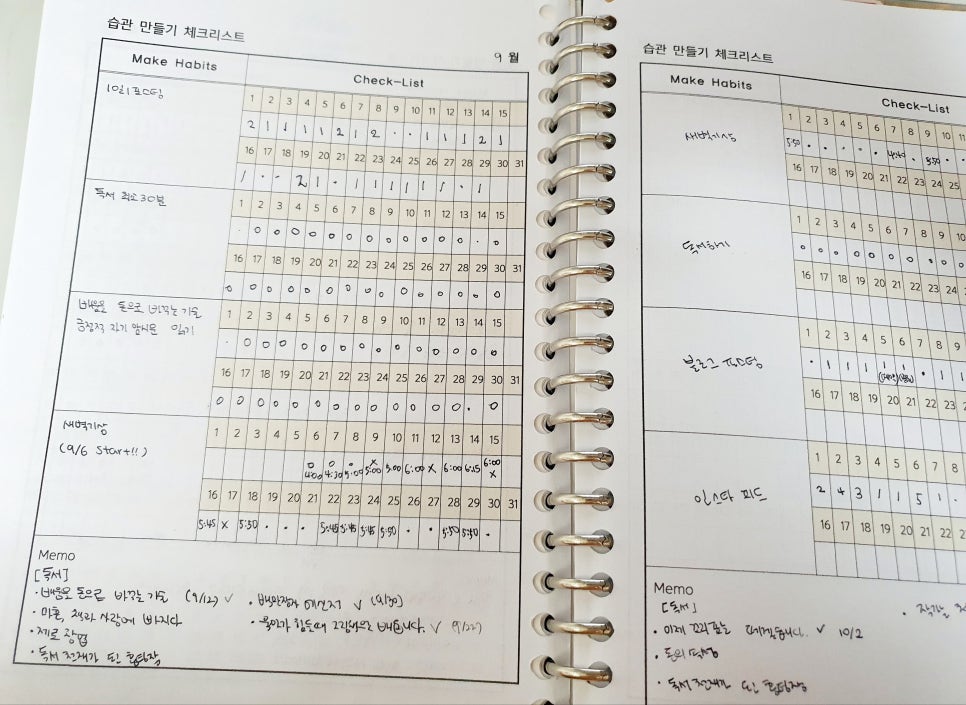 습관 만들기 체크리스트
9 월
Make Habits Check-List
1일1포스팅
1 2 3 4 5 6 7 8 9 10 11 12 13 14 15
2 1 1 1 1 2 1 2 · · 1 1 1 2 1
16 17 18 19 20 21 22 23 24 25 26 27 28 29 30 31
1 · · 2 1 · 1 1 1 1 1 1 · 1
독서 최소 30분
1 2 3 4 5 6 7 8 9 10 11 12 13 14 15
· o o o o o o o o o o o o · o
16 17 18 19 20 21 22 23 24 25 26 27 28 29 30 31
o o o o o o o o o o o o o o o
배움을 돈으로 바꾸는 기술
긍정적 자기 암시문 읽기
1 2 3 4 5 6 7 8 9 10 11 12 13 14 15
· o o o o o o o o o o o o o o
16 17 18 19 20 21 22 23 24 25 26 27 28 29 30 31
o o o o o o o o o o o o o · o
새벽기상
(9/6 Start!!)
1 2 3 4 5 6 7 8 9 10 11 12 13 14 15
o o o x
4:00 4:30 5:00 5:00 5:00 6:00 x 6:00 6:15 6:00 x
16 17 18 19 20 21 22 23 24 25 26 27 28 29 30 31
5:45 x 5:30 · · · 5:45 5:45 5:45 5:50 · · 5:50 5:50 ·
Memo
[독서]
· 배움을 돈으로 바꾸는 기술 (9/12) ✓
· 마흔, 책과 사랑에 빠지다
· 제로 창업
· 독서 천재가 된 홍팀장
· 백만장자 메신저 ✓ (9/30)
· 육아가 힘들때 그림책으로 배웁니다. ✓ 9/22)
습관 만들기 체크리스트
Make Habits Check-List
새벽기상
1 2 3 4 5 6 7 8 9 10 11
5:50 · · · · · 4:40 · 5:50 ·
16 17 18 19 20 21 22 23 24 25
독서하기
1 2 3 4 5 6 7 8 9 10
o o o o o o o o o o
16 17 18 19 20 21 22 23 24
블로그 포스팅
1 2 3 4 5 6 7 8 9
· 1 1 1 1 1 · 1 1
16 17 18 19 20 21 22 23
인스타 피드
1 2 3 4 5 6 7 8
2 4 3 1 1 5 1 ·
16 17 18 19 20 21 22
Memo
[독서]
· 이제 꼬리표는 떼겠습니다. ✓ 10/2
· 돈의 속성
· 독서 천재가 된 홍팀장